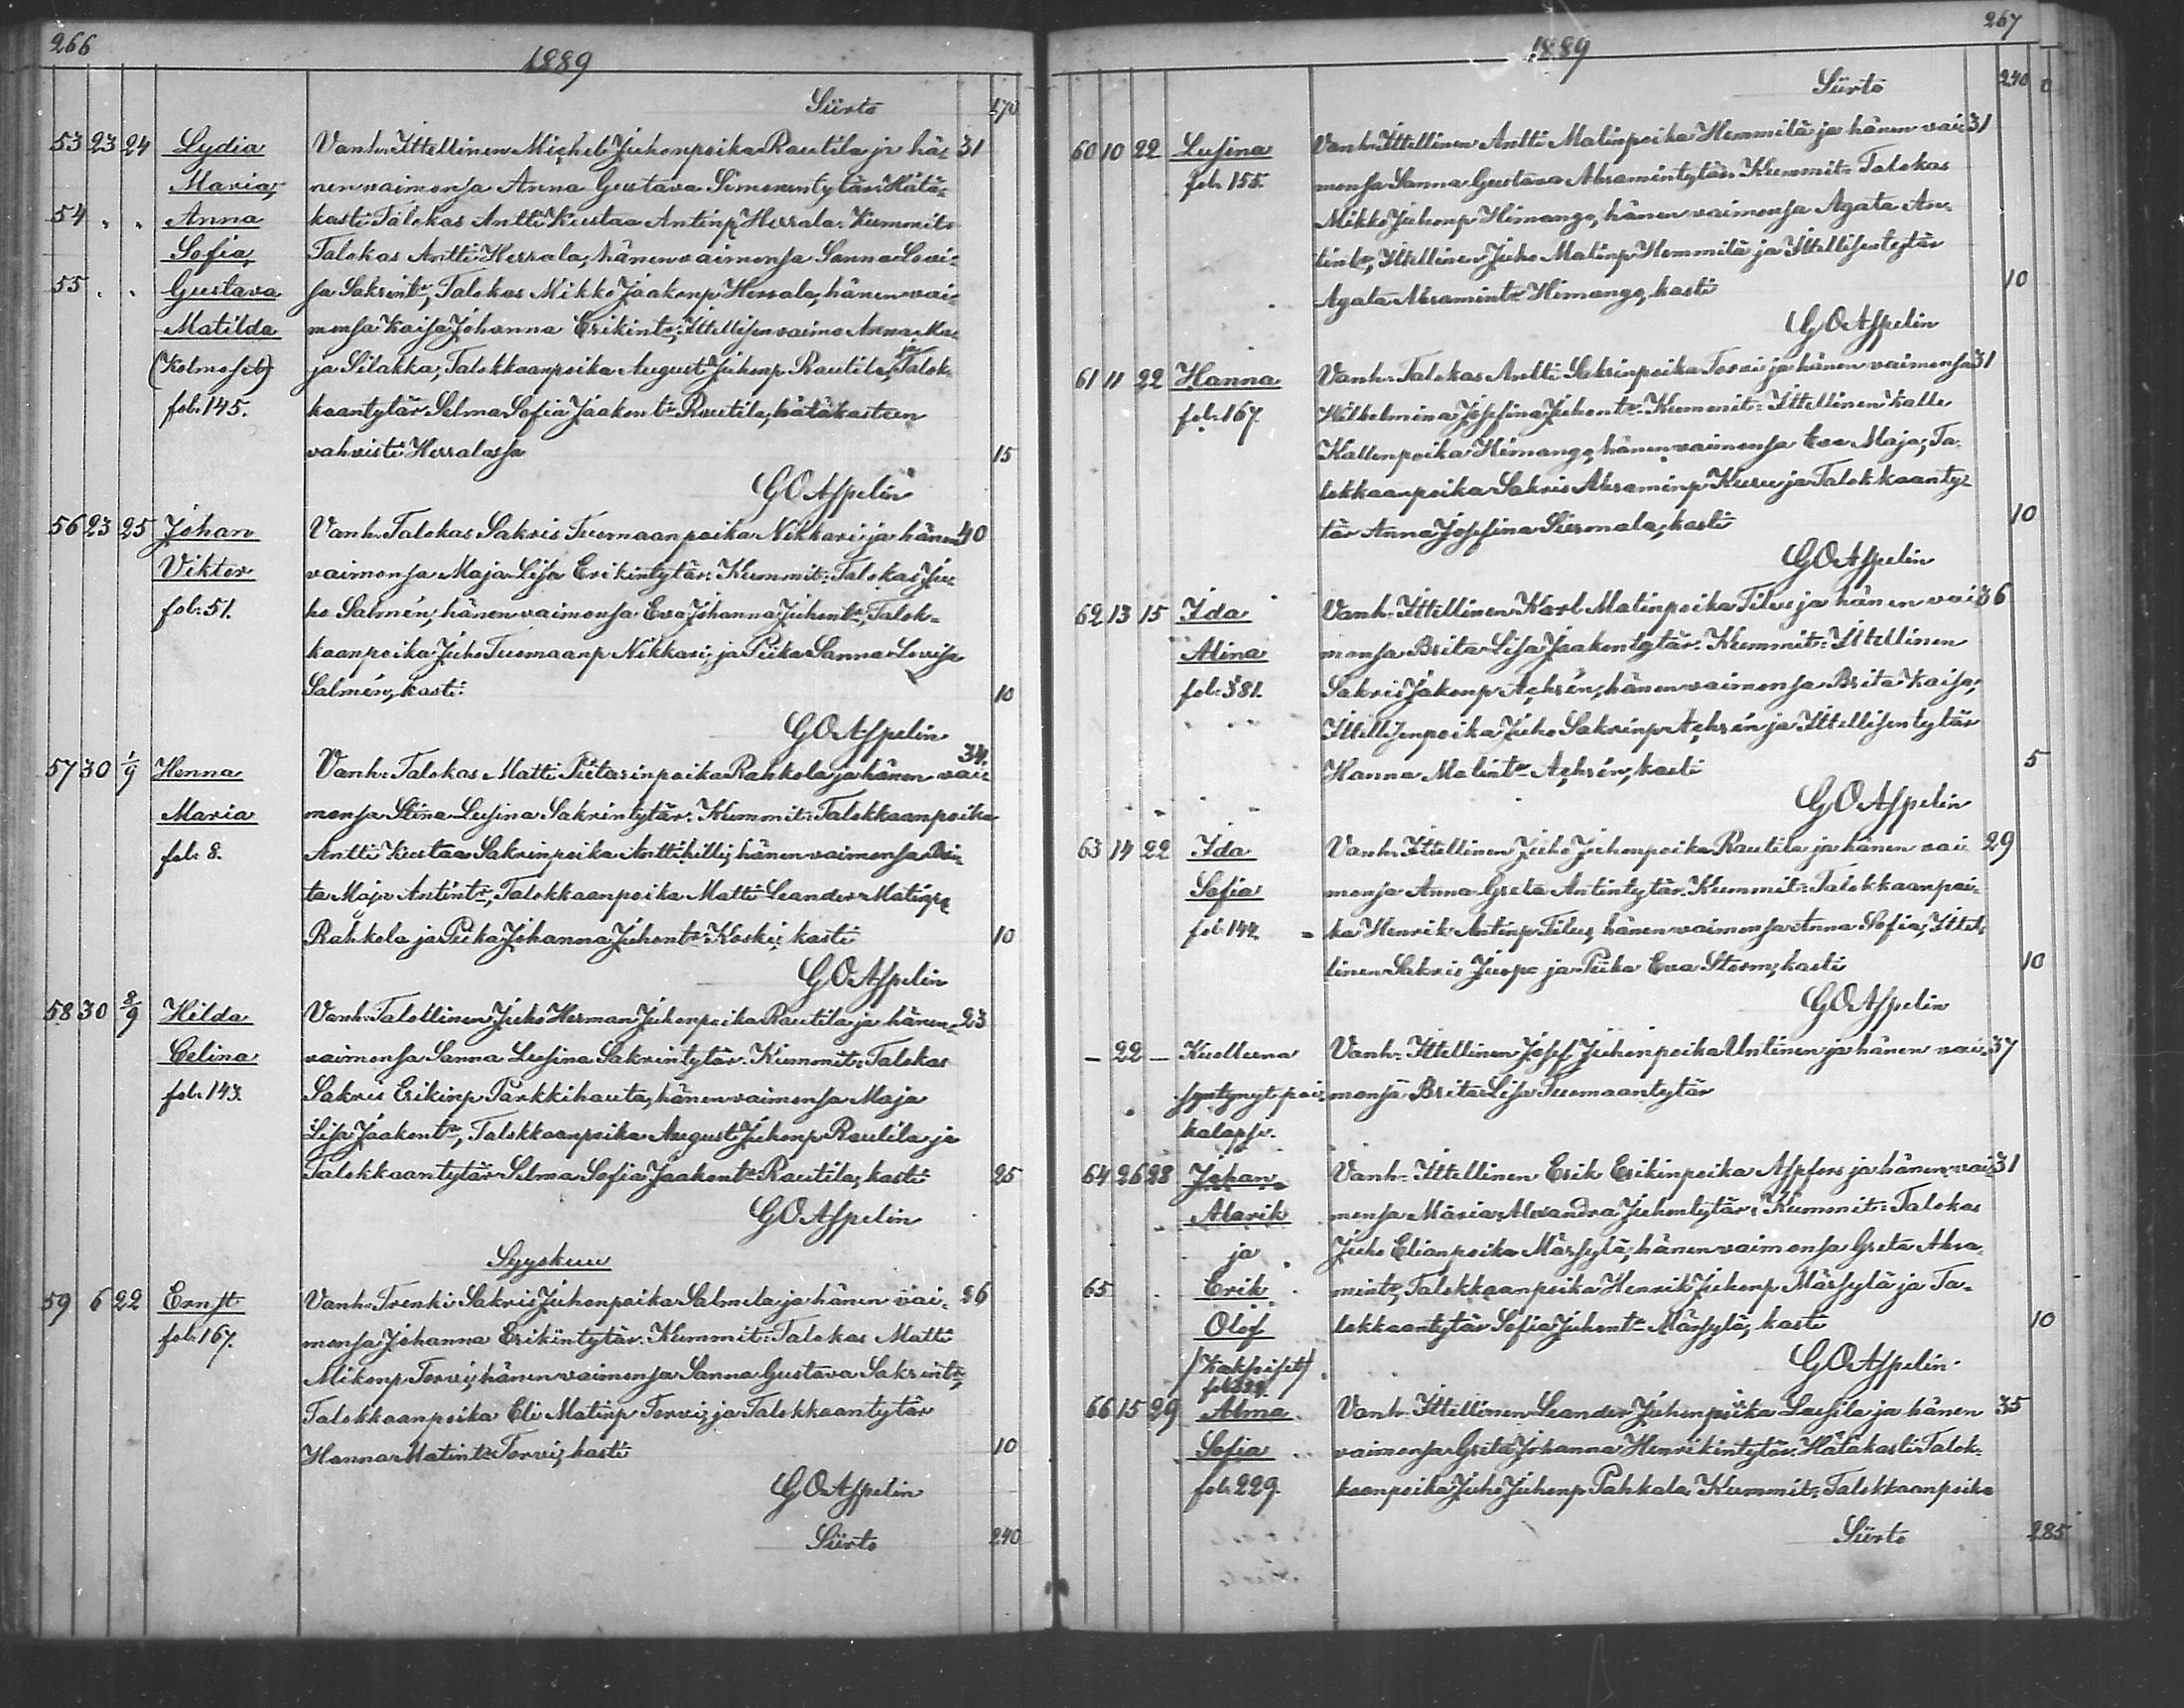 266
1889
Siirto 170
53 23 24 Lydia Vanh. Ittellinen Michel Juhonpoika Rautila ja hä= 31
Maria, nen vaimonsa Anna Gustava Simonintytär. Hätä=
54 " " Anna kasti Talokas Antti Kustaa Antinp Herrala. Kummit:
Sofia, Talokas Antti Herrala, hänen vaimonsa Sanna Lovi=
55 " " Gustava sa Sakrint:, Talokas Mikko Jaakonp Herrala, hänen vai=
Matilda monsa Kaisa Johanna Erikint:, Ittellisen vaimo Anna Ma=
(Kolmoset) ja Silakka, Talokkaanpoika August Juhonp Rautila, ja Talok=
fol. 145. kaantytär Selma Sofia Jaakont: Rautila, hätäkasteen
vahvisti Herralassa 15
G O Aspelin
56 23 25 Johan Vanh. Talokas Sakris Tuomaanpoika Nikkari ja hänen 40
Viktor vaimonsa Maja Lisa Erikintytär. Kummit: Talokas Ju=
fol. 51. ho Salmén, hänen vaimonsa Eva Johanna Juhont:, Talok=
kaanpoika Juho Tuomaanp Nikkari, ja Piika Sanna Lovisa
Salmén, kasti 10
G O Aspelin
57 30 1/9 Henna Vanh. Talokas Matti Pietarinpoika Rahkola ja hänen vai= 34.
Maria monsa Stina Lusina Sakrintytär. Kummit: Talokkaanpoika
fol. 8. Antti Kustaa Sakrinpoika Anttihilli, hänen vaimonsa Bri=
ta Maja Antint:, Talokkaanpoika Matti Leander Matinp
Rahkola ja Piika Johanna Juhont: Koski, kasti 10
G O Aspelin
58 30 8/9 Hilda Vanh. Talollinen Juho Herman Juhonpoika Rautila ja hänen 23
Celina vaimonsa Sanna Lusina Sakrintytär. Kummit: Talokas
fol. 143. Sakris Erikinp Parkkihauta, hänen vaimonsa Maja
Lisa Jaakont:, Talokkaanpoika August Juhonp Rautila ja
Talokkaantytär Selma Sofia Jaakont: Rautila, kasti 25
G O Aspelin
Syyskuu
59 6 22 Ernst Vanh. Trenki Sakris Juhonpoika Salmela ja hänen vai= 26
fol. 167. monsa Johanna Erikintytär. Kummit: Talokas Matti
Mikonp Torvi, hänen vaimonsa Sanna Gustava Sakrint:,
Talokkaanpoika Eli Matinp Torvi, ja Talokkaantytär
Hanna Matint: Torvi, kasti 10
G O Aspelin
Siirto 240
267
1889
Siirto 240
60 10 22 Lusina Vanh. Ittellinen Antti Matinpoika Hemmilä ja hänen vai= 31
fol. 155. monsa Sanna Gustava Abramintytär. Kummit: Talokas
Mikko Juhonp Himango, hänen vaimonsa Agata An=
tint:, Ittellinen Juho Matinp Hemmilä ja Ittellisentytär
Agata Abramint: Himango, kasti 10
G O Aspelin
61 11 22 Hanna Vanh. Talokas Antti Sakrinpoika Torvi ja hänen vaimonsa 31
fol. 167. Wilhelmina Josefina Juhont: Kummit: Ittellinen Kalle
Kallenpoika Himango, hänen vaimonsa Eva Maja, Ta=
lokkaanpoika Sakris Abraminp Kuru ja Talokkaanty=
tär Anna Josefina Siermala, kasti 10
G O Aspelin
62 13 15 Ida Vanh. Ittellinen Karl Matinpoika Tilus ja hänen vai= 36
Alina monsa Brita Lisa Jaakontytär. Kummit: Ittellinen
fol. 381. Sakris Jakonp Achrén, hänen vaimonsa Brita Kaisa,
Ittellisenpoika Juho Sakrinp Achrén ja Ittellisentytär
Hanna Matint: Achrén, kasti 5
G O Aspelin
63 14 22 Ida Vanh. Ittellinen Juho Juhonpoika Rautila ja hänen vai= 29
Sofia monsa Anna Greta Antintytär. Kummit: Talokkaanpoi=
fol. 144. ka Henrik Antinp Tilus, hänen vaimonsa Anna Sofia, Ittel=
linen Sakris Juopo ja Piika Eva Storm, kasti 10
G O Aspelin
– 22 – Kuolleena Vanh. Ittellinen Josef Juhonpoika Untinen ja hänen vai= 37
syntynyt poi= monsa Brita Lisa Tuomaantytär
kalapsi.
64 26 28 Johan Vanh. Ittellinen Erik Erikinpoika Aspfors ja hänen vai= 31
Alarik monsa Maria Alexandra Juhontytär. Kummit: Talokas
ja Juho Elianpoika Märsylä, hänen vaimonsa Greta Abra=
65 Erik mint:, Talokkaanpoika Henrik Juhonp Märsylä ja Ta=
Olof lokkaantytär Sofia Juhont: Märsylä, kasti 10
(Kaksoiset) G O Aspelin
66 15 29 Alma Vanh. Ittellinen Leander Juhonpoika Lassila ja hänen 35
Sofia vaimonsa Greta Johanna Henrikintytär. Hätäkasti Talok=
fol. 229. kaanpoika Juho Juhonp Pahkala. Kummit: Talokkaanpoika
Siirto 285